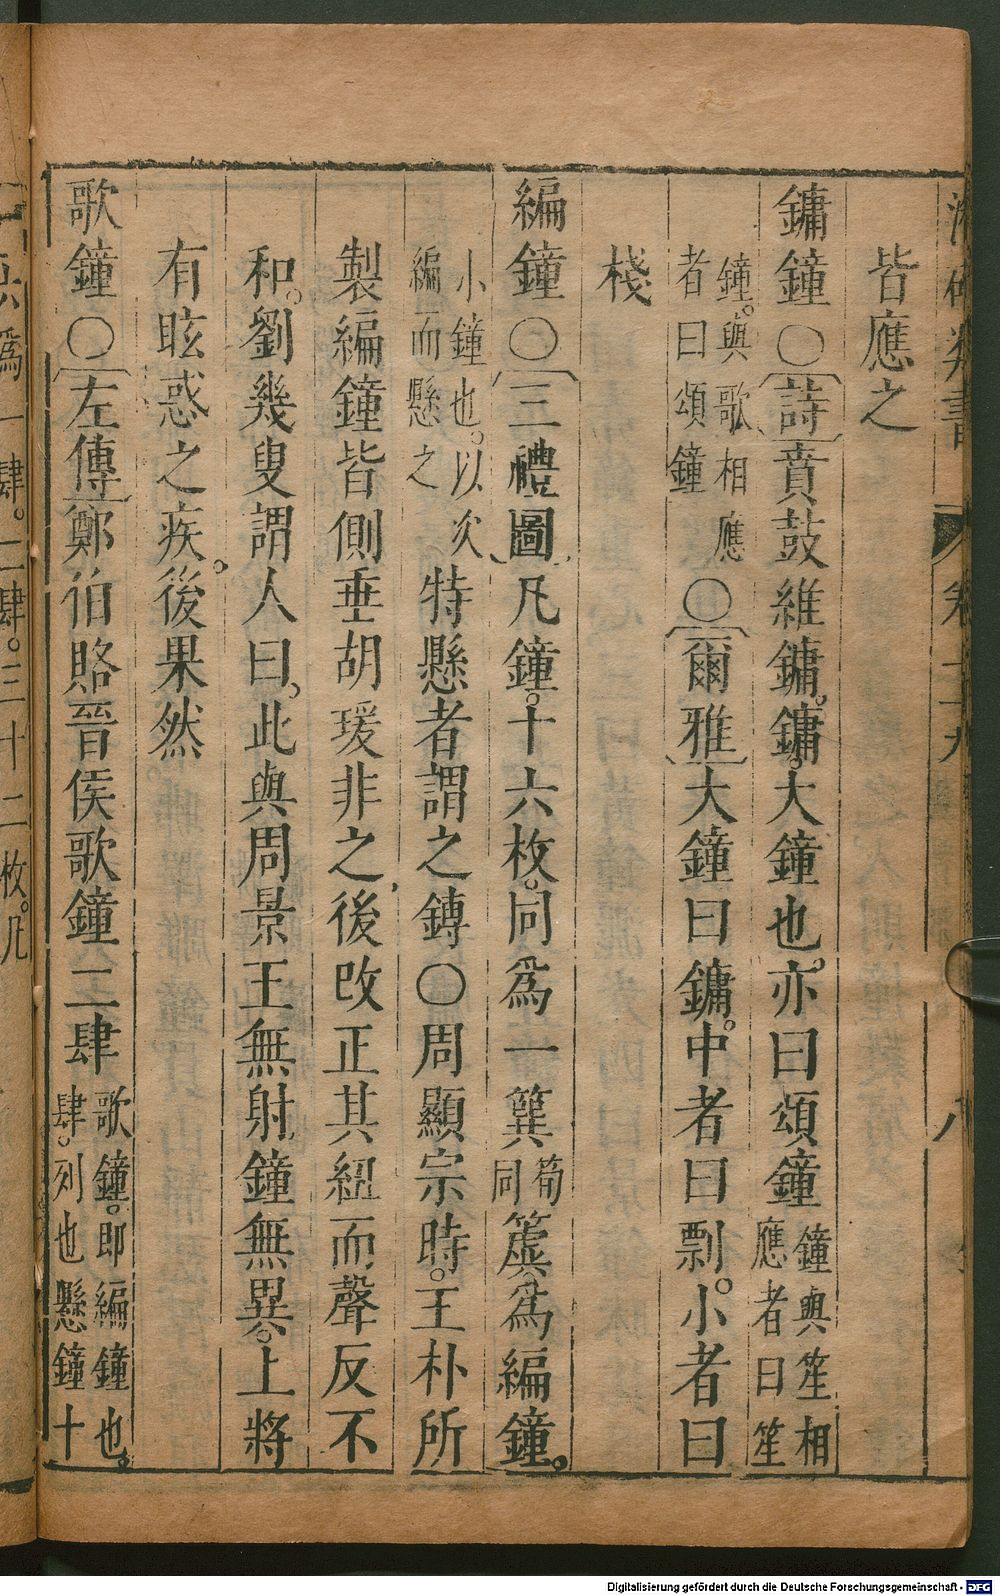 皆應之
鏞鐘○〔詩〕賁鼓維鏞。鏞大鐘也。亦曰頌鐘鐘與笙相應者曰笙
鐘。與歌相應者曰頌鐘○〔爾雅〕大鐘曰鏞。中者曰剽。小者曰
棧
編鐘○〔三禮圖〕凡鐘。十六枚。同爲一簨筍同簴爲編鐘。
小鐘也。以次編而懸之特懸者謂之鎛○周顯宗時。王朴所
製編鐘皆側垂胡瑗非之後改正其紐而聲反不
和。劉幾叟謂人曰。此與周景王無射鐘無異。上將
有眩惑之疾。後果然
歌鐘○〔左傳〕鄭伯賂晉侯歌鐘二肆歌鐘。即編鐘也。肆。列也懸鐘十
六爲一肆。二肆。三十二枚。凡
類書
卷
八
Digitalisierung gefördert durch die Deutsche Forschungsgemeinschaft - DFG